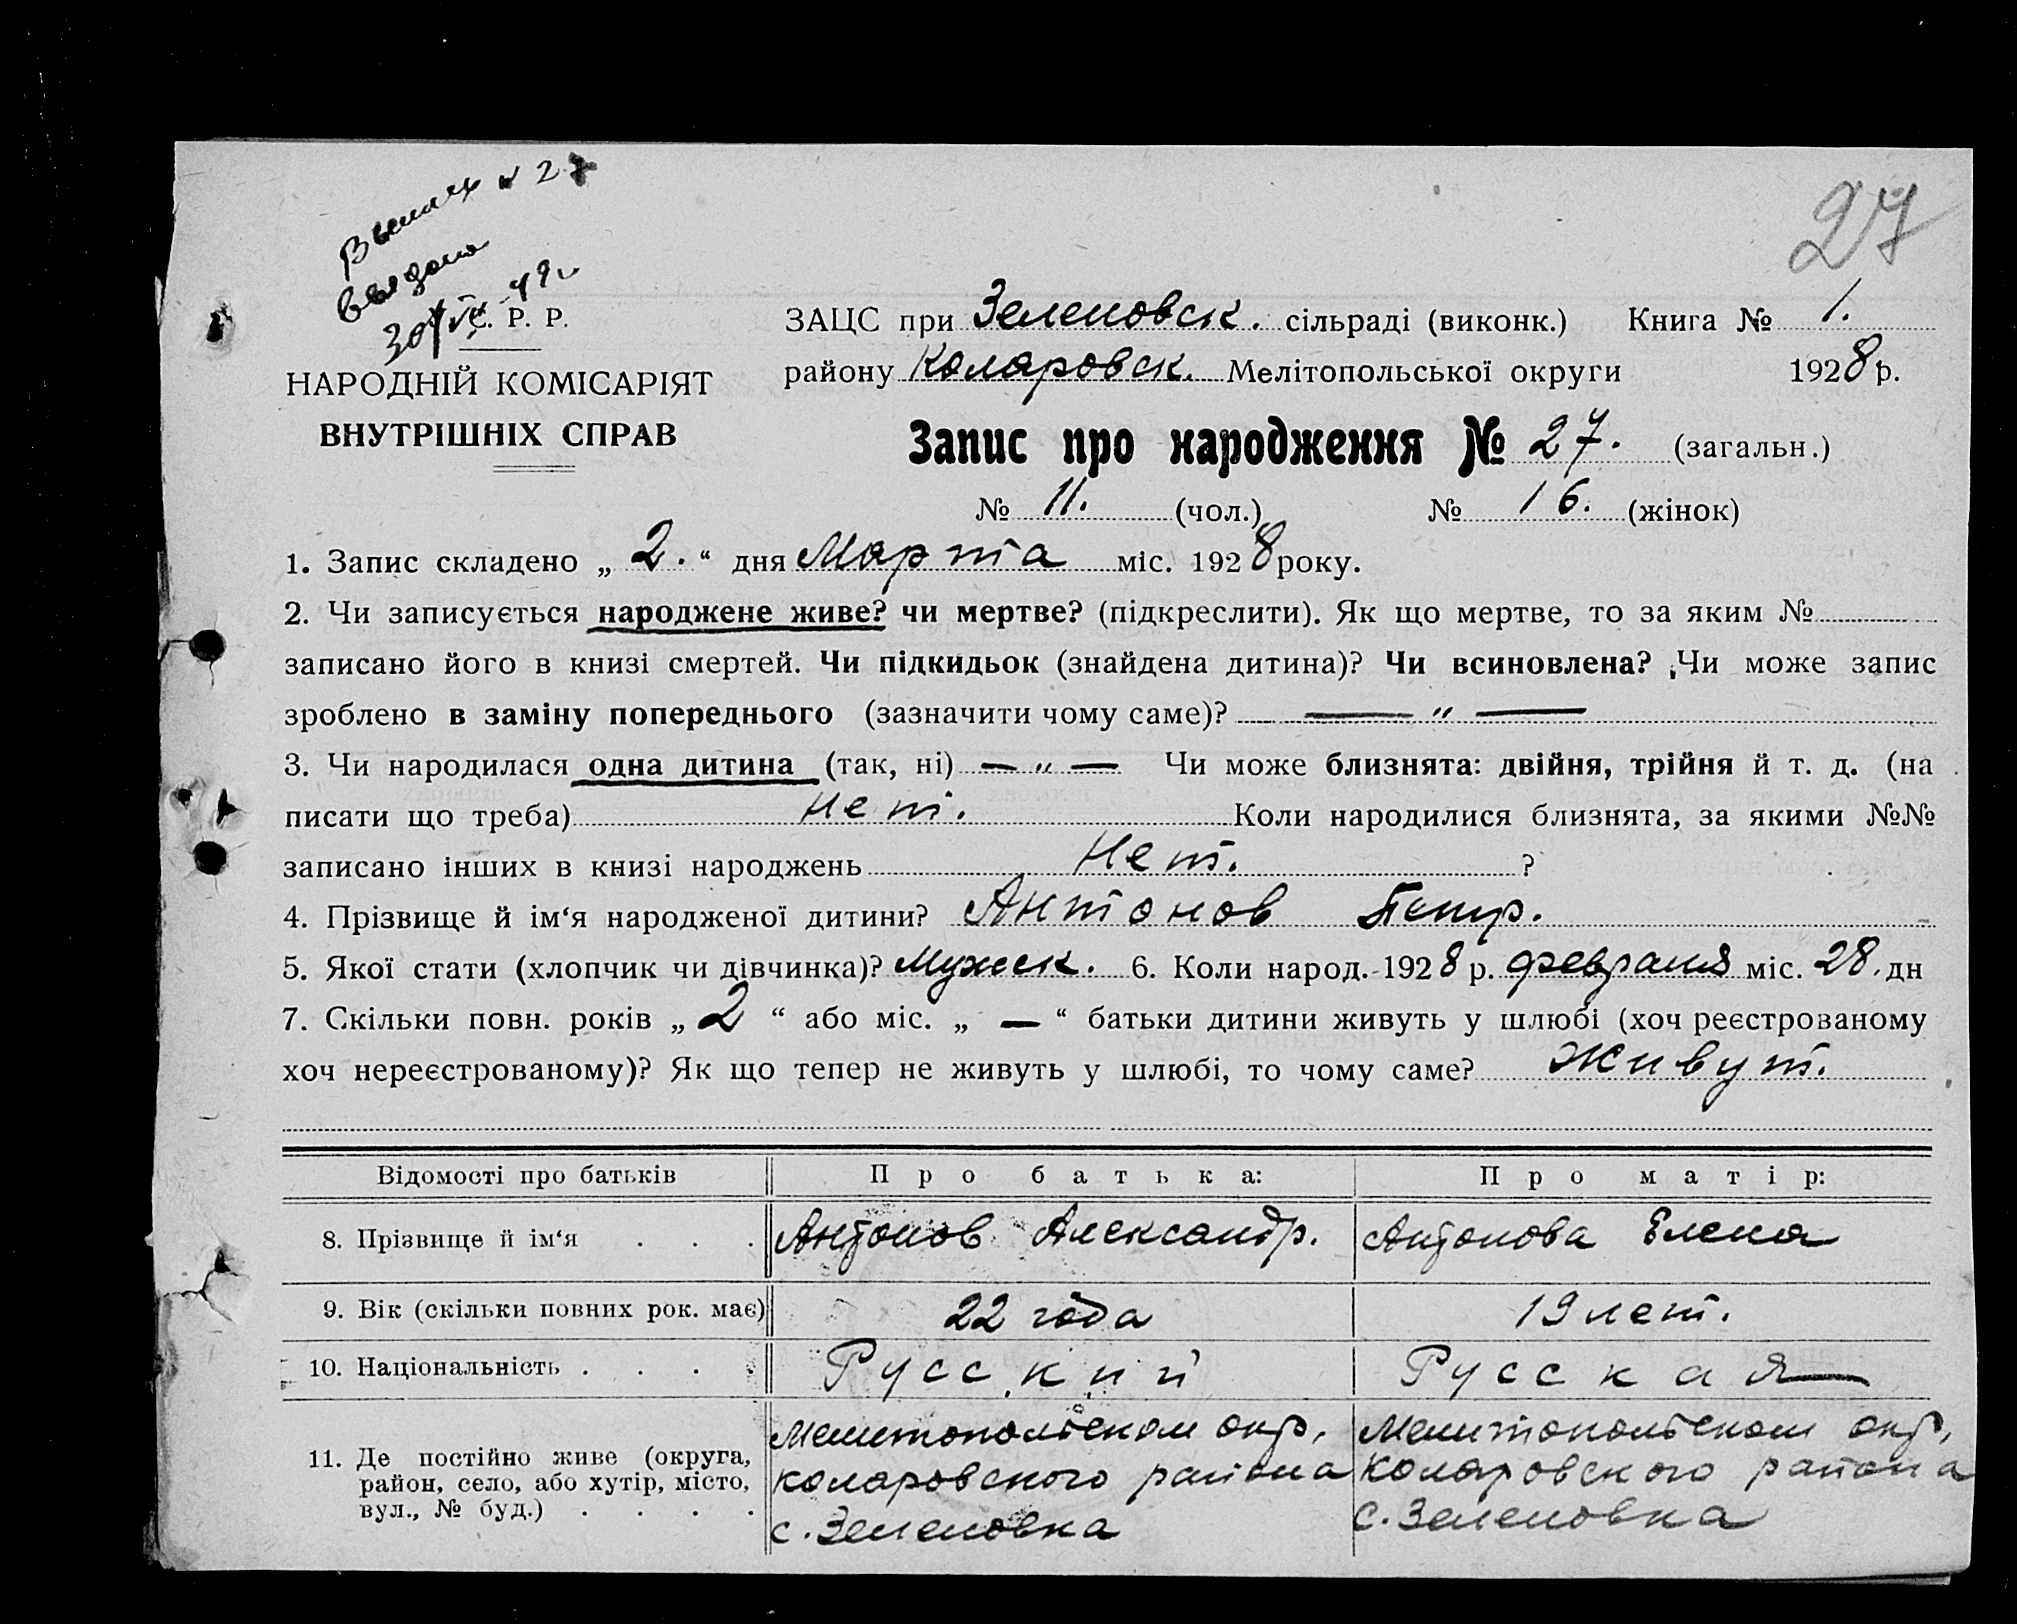 27
выдана
30/VII 49 г
С. Р. Р.
НАРОДНІЙ КОМІСАРІЯТ
ВНУТРІШНІХ СПРАВ
27
ЗАЦС при Зеленовск. сільраді (виконк.) Книга № 1.
району Коларовск. Мелітопольської округи 1928 р.
Запис про народження № 27. (загальн.)
№ 11. (чол.) № 16. (жінок)
1. Запис складено „ 2. “ дня Марта міс. 1928 року.
2. Чи записується народжене живе? чи мертве? (підкреслити). Як що мертве, то за яким №
записано його в книзі смертей. Чи підкидьок (знайдена дитина)? Чи всиновлена? Чи може запис
зроблено в заміну попереднього (зазначити чому саме)? — „ —
3. Чи народилася одна дитина (так, ні) — „ — Чи може близнята: двійня, трійня й т. д. (на
писати що треба) нет. Коли народилися близнята, за якими №№
записано інших в книзі народжень Нет. ?
4. Прізвище й ім‘я народженої дитини? Антонов Петр.
5. Якої стати (хлопчик чи дівчинка)? Мужеск. 6. Коли народ. 1928 р. февраля міс. 28. дн
7. Скільки повн. років „ 2 “ або міс. „ — “ батьки дитини живуть у шлюбі (хоч реєстрованому
хоч нереєстрованому)? Як що тепер не живуть у шлюбі, то чому саме? Живут.
Відомості про батьків Про батька: Про матір:
8. Прізвище й ім‘я . . . Антонов Александр. Антонова Елена
9. Вік (скільки повних рок. має) 22 года 19 лет.
10. Національність . . . . Русский Русская
11. Де постійно живе (округа,
район, село, або хутір, місто,
вул., № буд.) . . . .
Мелитопольском окр.
коларовского района
с. Зеленовка
Мелитопольском окр.
коларовского района
с. Зеленовка